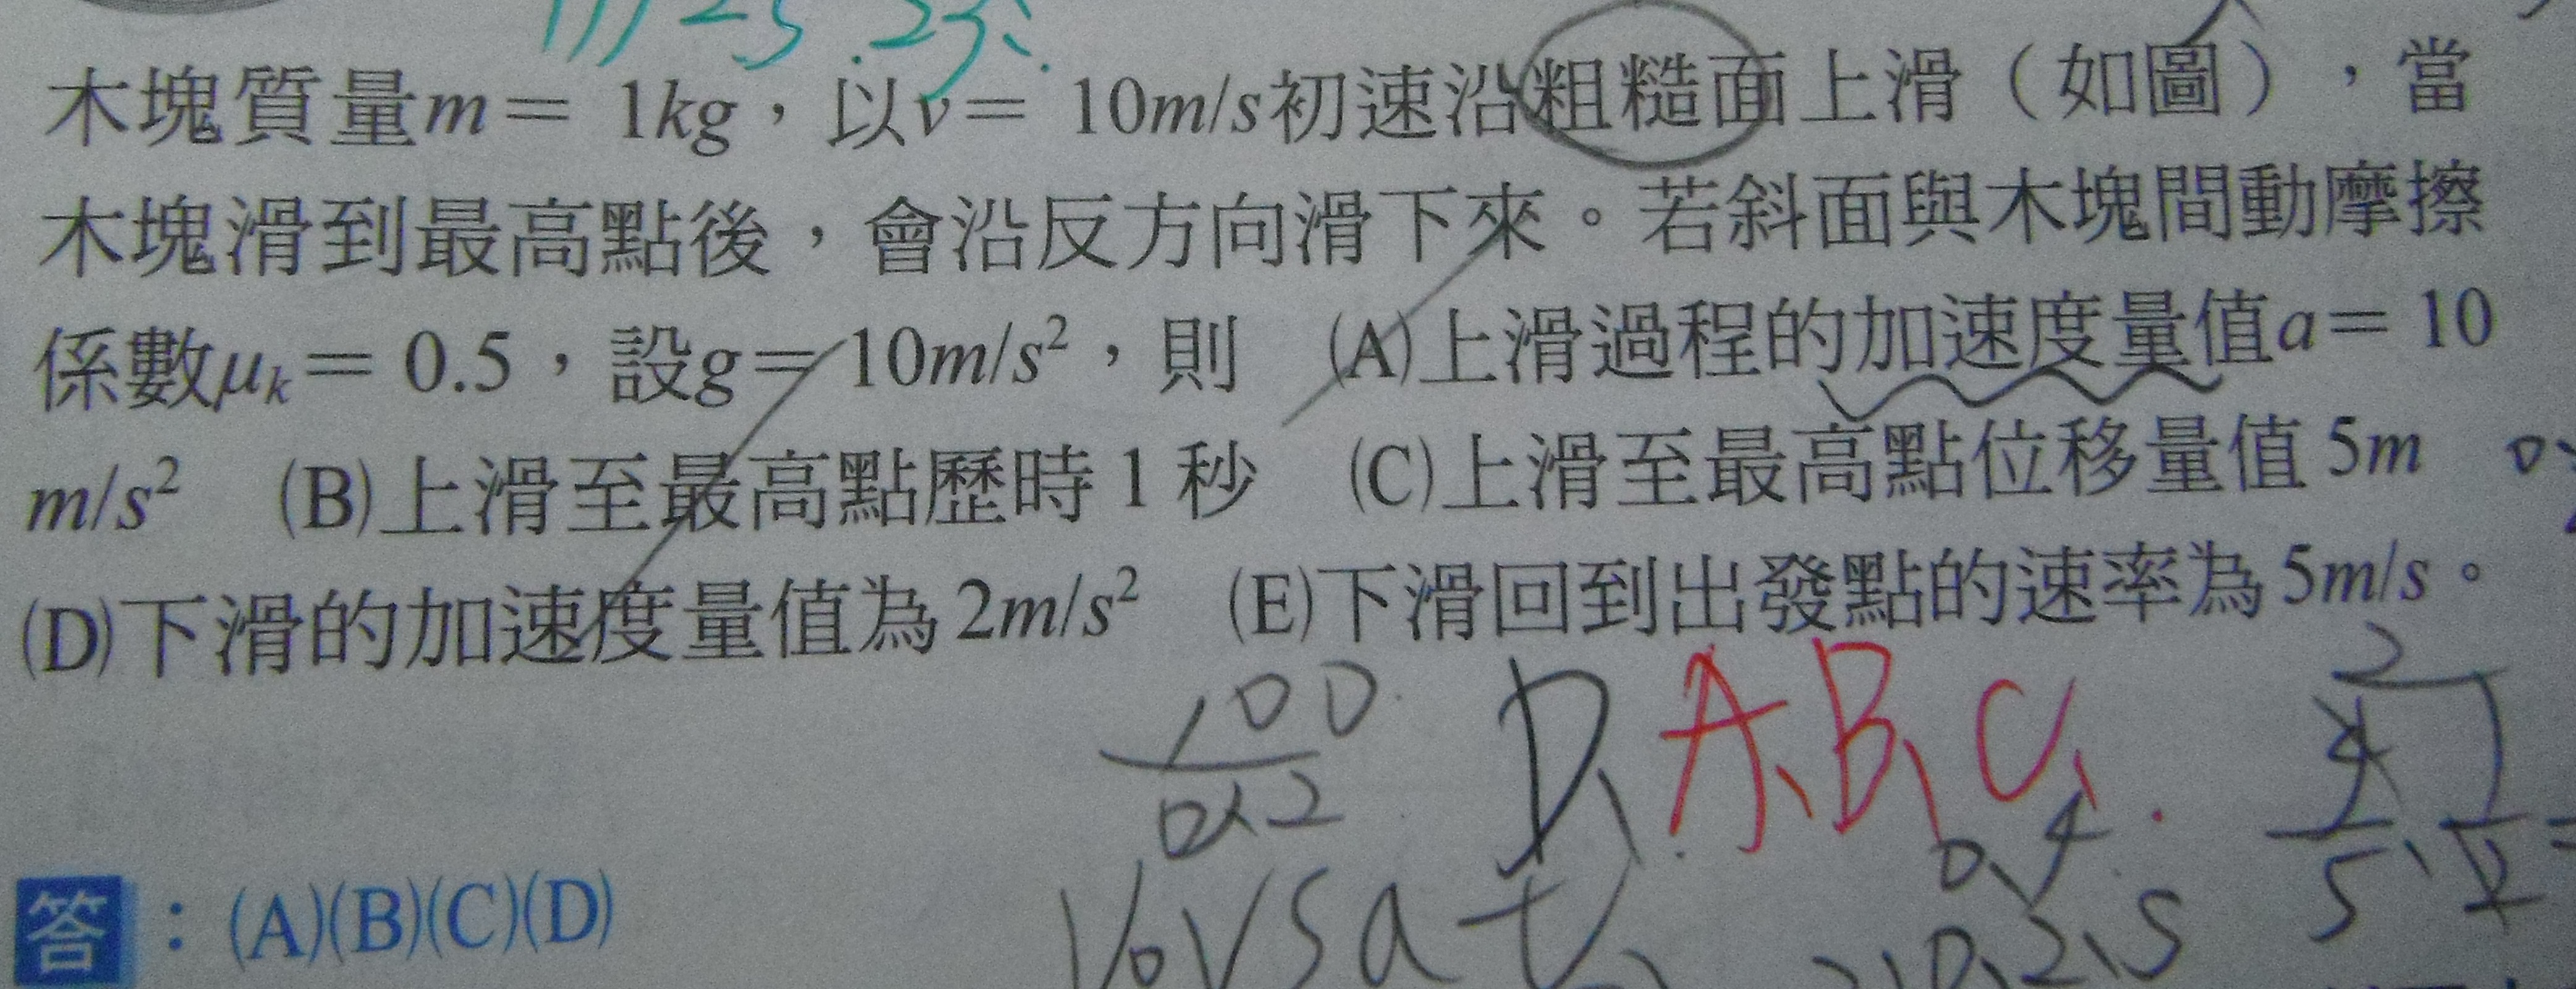 木塊質量m= 1kg，以v= 10m/s初速沿粗糙面上滑（如圖），當
木塊滑到最高點後，會沿反方向滑下來。若斜面與木塊間動摩擦
係數μk= 0.5，設g= 10m/s²，則 (A)上滑過程的加速度量值a= 10
m/s² (B)上滑至最高點歷時1秒 (C)上滑至最高點位移量值5m
(D)下滑的加速度量值為2m/s² (E)下滑回到出發點的速率為5m/s。
100
D、A、B、C、
答：(A)(B)(C)(D)